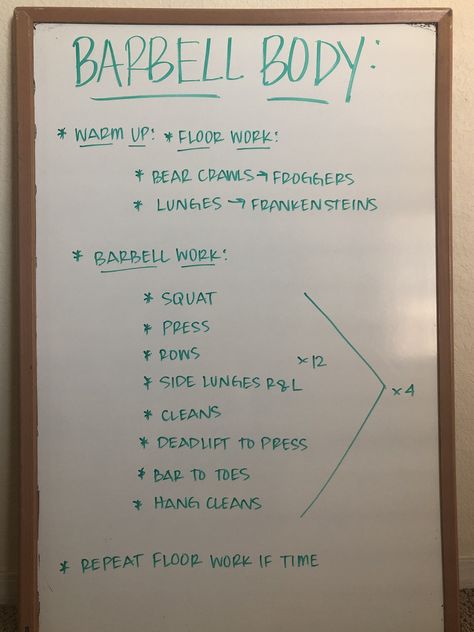 BARBELL BODY:
* WARM UP: * FLOOR WORK:
* BEAR CRAWLS → FROGGERS
* LUNGES → FRANKENSTEINS
* BARBELL WORK:
* SQUAT
* PRESS
* ROWS
* SIDE LUNGES R&L
* CLEANS
* DEADLIFT TO PRESS
* BAR TO TOES
* HANG CLEANS
x12
x4
* REPEAT FLOOR WORK IF TIME